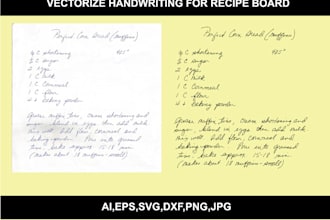 VECTORIZE HANDWRITING FOR RECIPE BOARD
Perfect Corn Bread (muffins)
C shortening 425°
C sugar
2 eggs
1 C milk
1 C cornmeal
1 C flour
4 t baking powder
Grease muffin tins, cream shortening and
sugar, blend in eggs then add milk,
mix well. Add flour, cornmeal and
baking powder. Pour into greased
tins, bake approx. 15-18 min
(makes about 18 muffins - small)
Perfect Corn Bread (muffins)
C shortening 425°
C sugar
2 eggs
1 C milk
1 C cornmeal
1 C flour
4 t baking powder
Grease muffin tins, cream shortening and
sugar, blend in eggs then add milk,
mix well. Add flour, cornmeal and
baking powder. Pour into greased
tins, bake approx. 15-18 min
(makes about 18 muffins - small)
AI,EPS,SVG,DXF,PNG,JPG